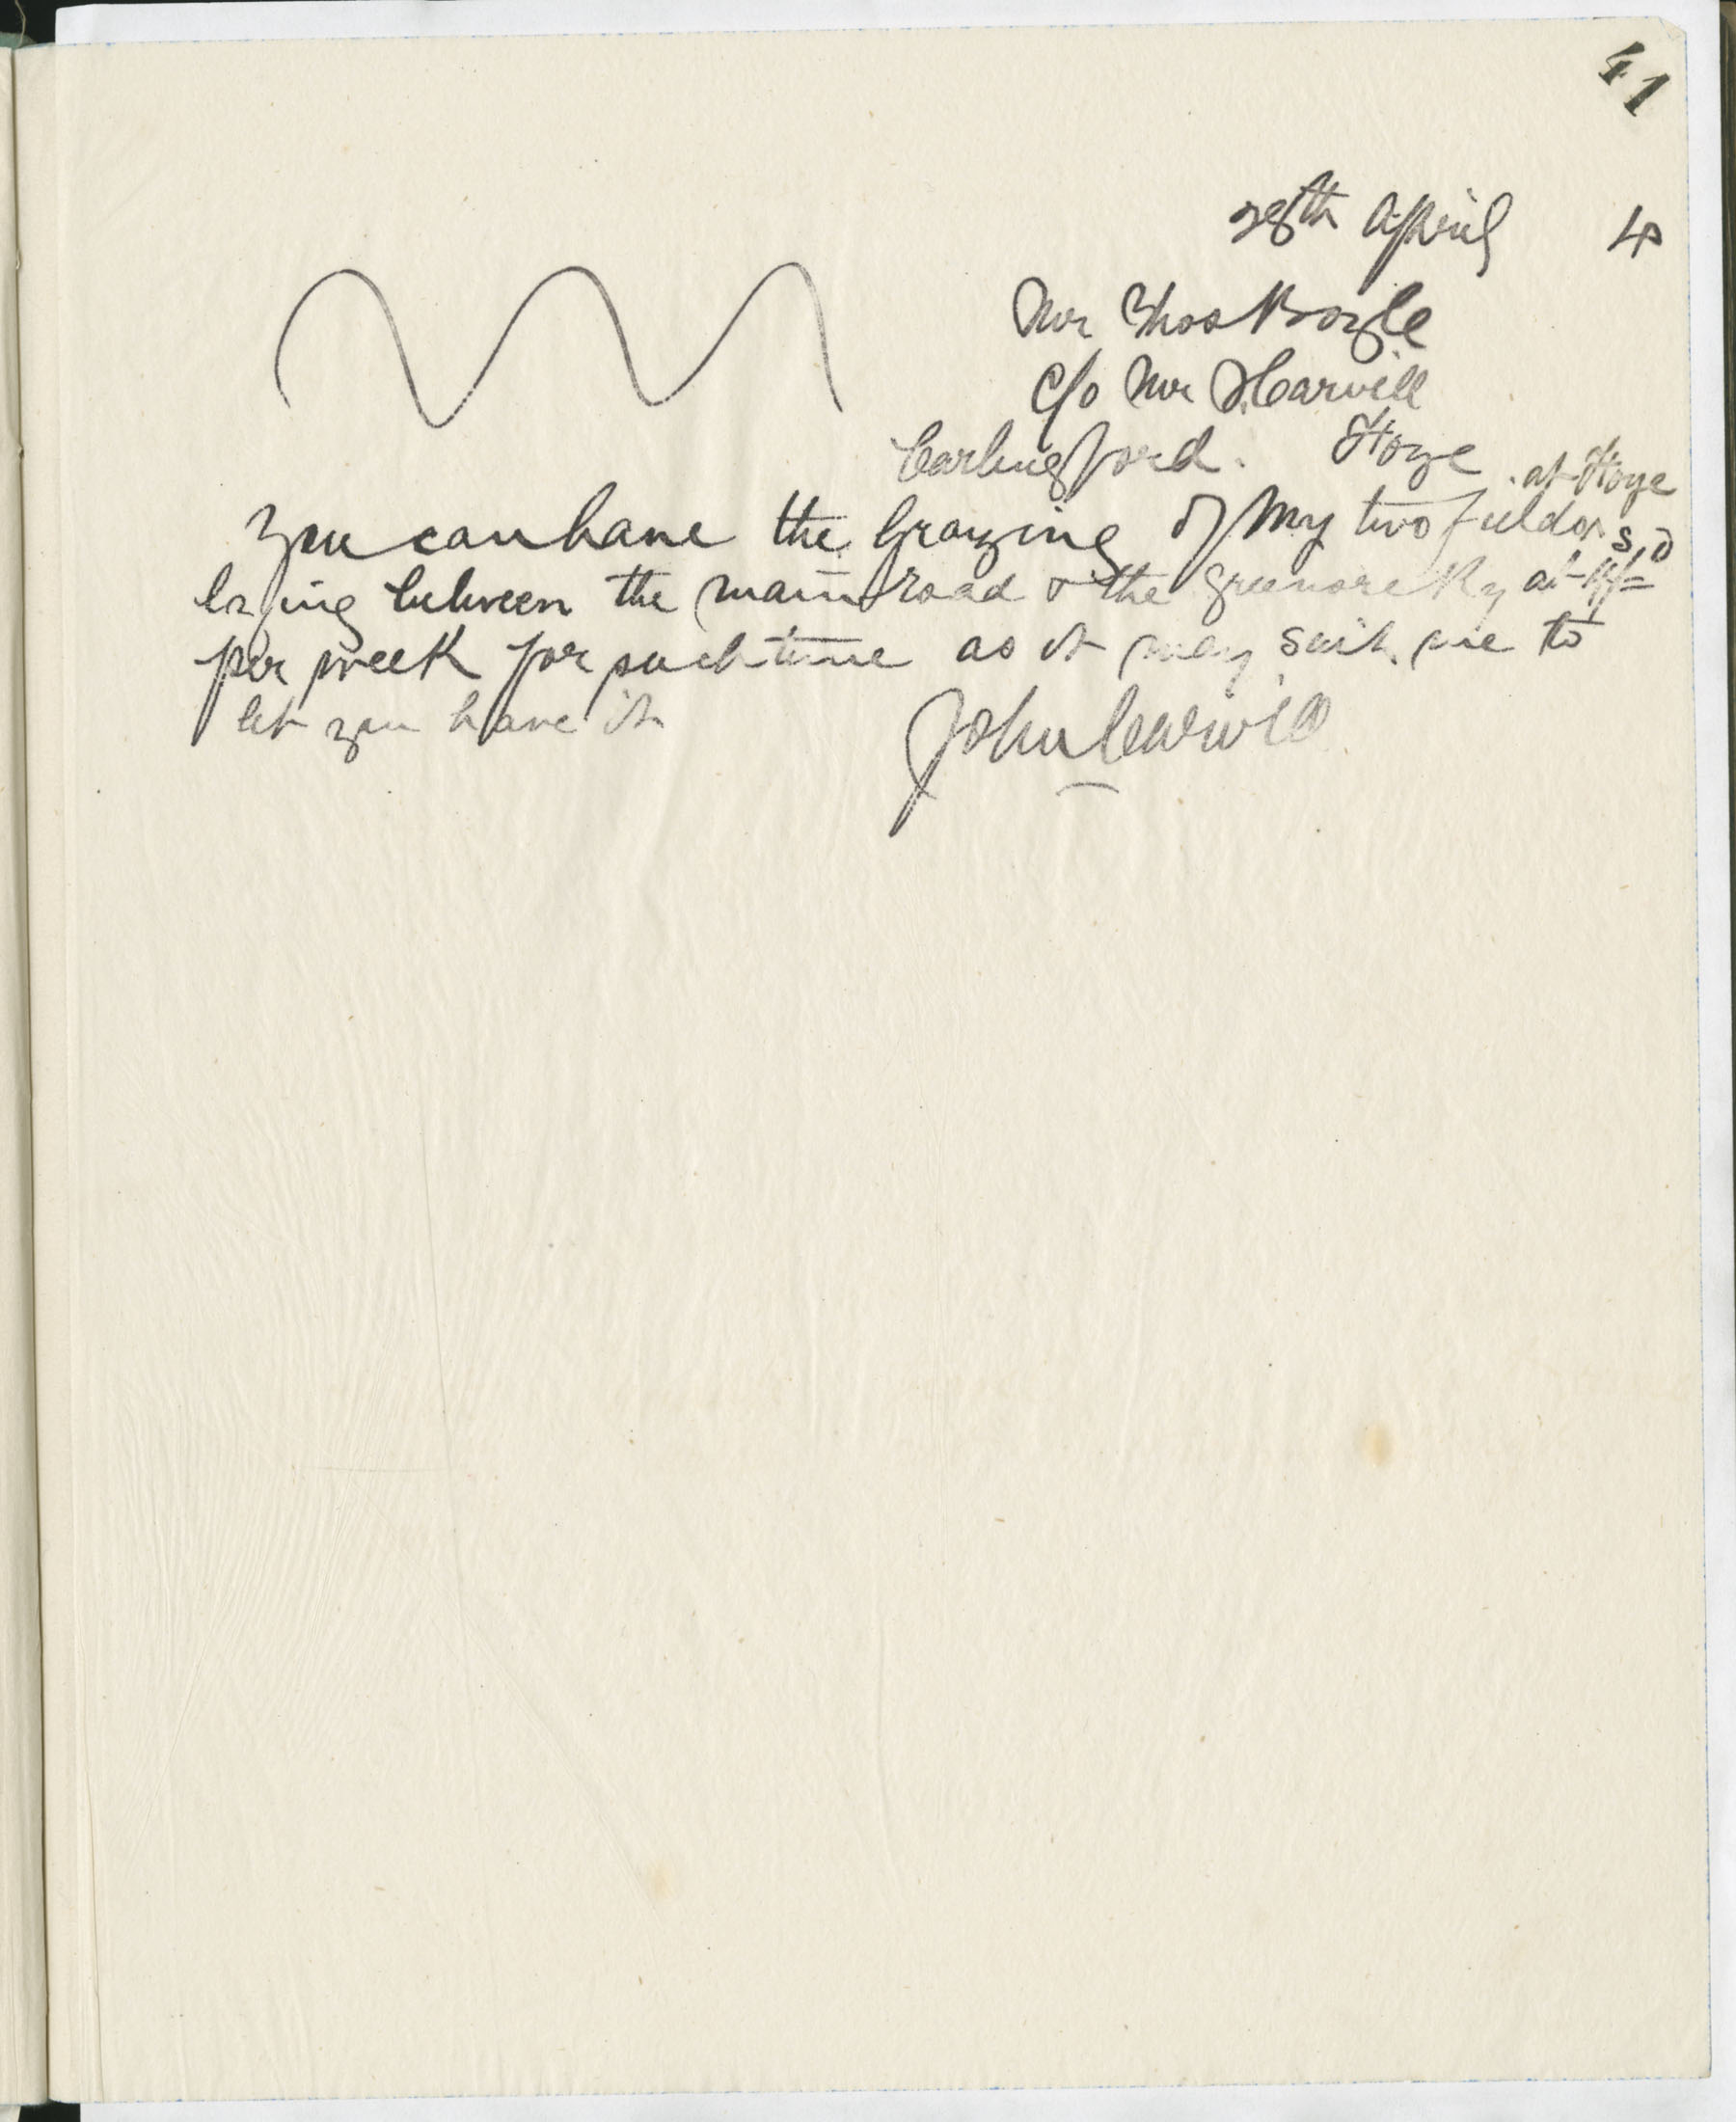 41
28th April 4
Mr Thos Boyle
c/o Mr H. Carvill
Carlingford. Hoye
at Hoye
You can have the Grazing of my two fields s, d
lying between the main road & the Greenore Ry at
per week for such time as it may suit me to
let you have it
John Carvill